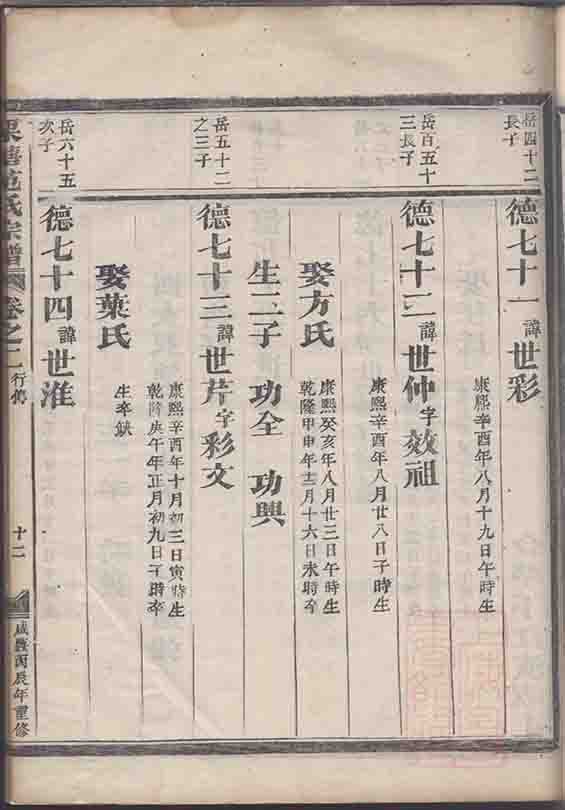 岳四十二
長子
德七十一 諱 世彩
康熙辛酉年八月十九日午時生
岳百五十
三長子
德七十二 諱 世仲 字 效祖
康熙辛酉年八月廿八日子時生
娶方氏
康熙癸亥年八月廿三日午時生
乾隆甲申年十二月十六日未時卒
生二子 功全 功興
岳五十二
之三子
德七十三 諱 世芹 字 彩文
康熙辛酉年十月初三日寅時生
乾隆庚午年正月初九日子時卒
娶葉氏
生卒缺
岳六十五
次子
德七十四 諱 世淮
范氏宗譜
卷之二 行傳
十二
咸豐丙辰年重修